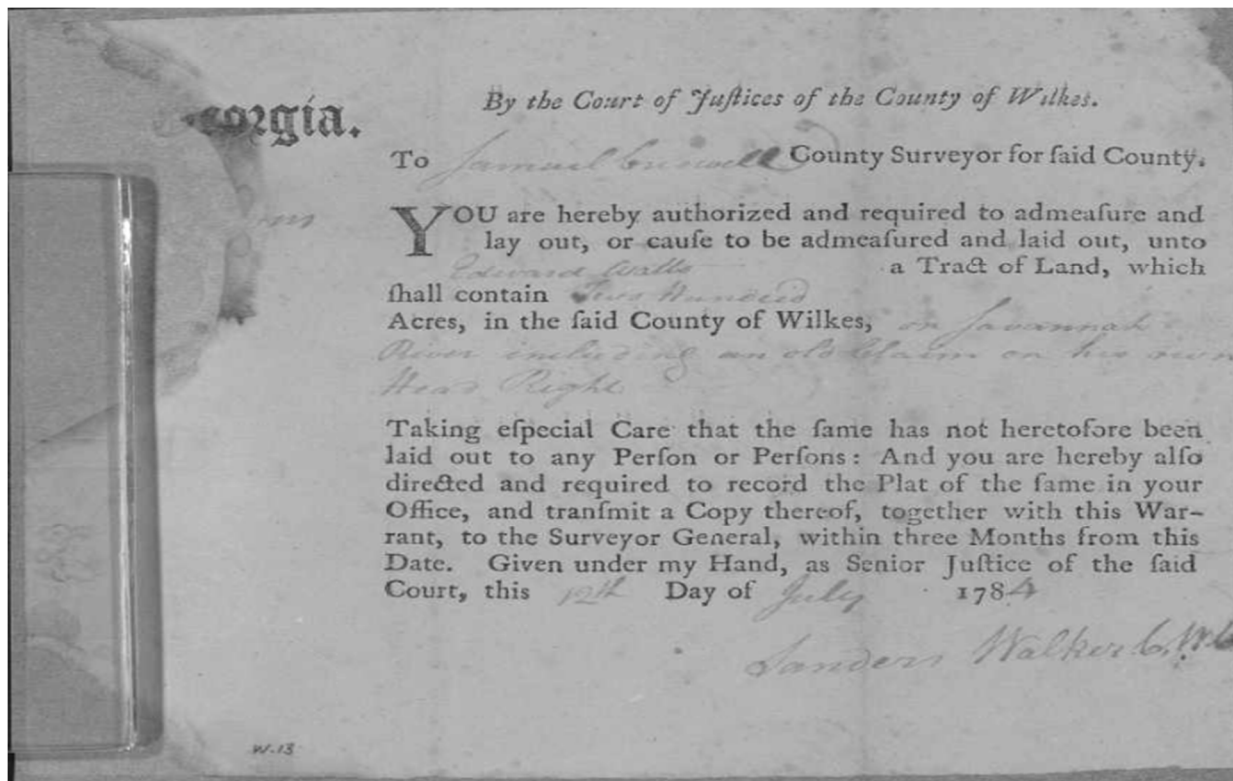 Georgia.
By the Court of Juſtices of the County of Wilkes.
To Samuel Creswell County Surveyor for ſaid County.
YOU are hereby authorized and required to admeaſure and
lay out, or cauſe to be admeaſured and laid out, unto
Edward Watts a Tract of Land, which
ſhall contain Two Hundred
Acres, in the ſaid County of Wilkes, on Savannah
River including an old Claim on his own
Head Right
Taking eſpecial Care that the ſame has not heretofore been
laid out to any Perſon or Perſons: And you are hereby alſo
directed and required to record the Plat of the ſame in your
Office, and tranſmit a Copy thereof, together with this War-
rant, to the Surveyor General, within three Months from this
Date. Given under my Hand, as Senior Juſtice of the ſaid
Court, this 12th Day of July 1784
Sanders Walker
W.13